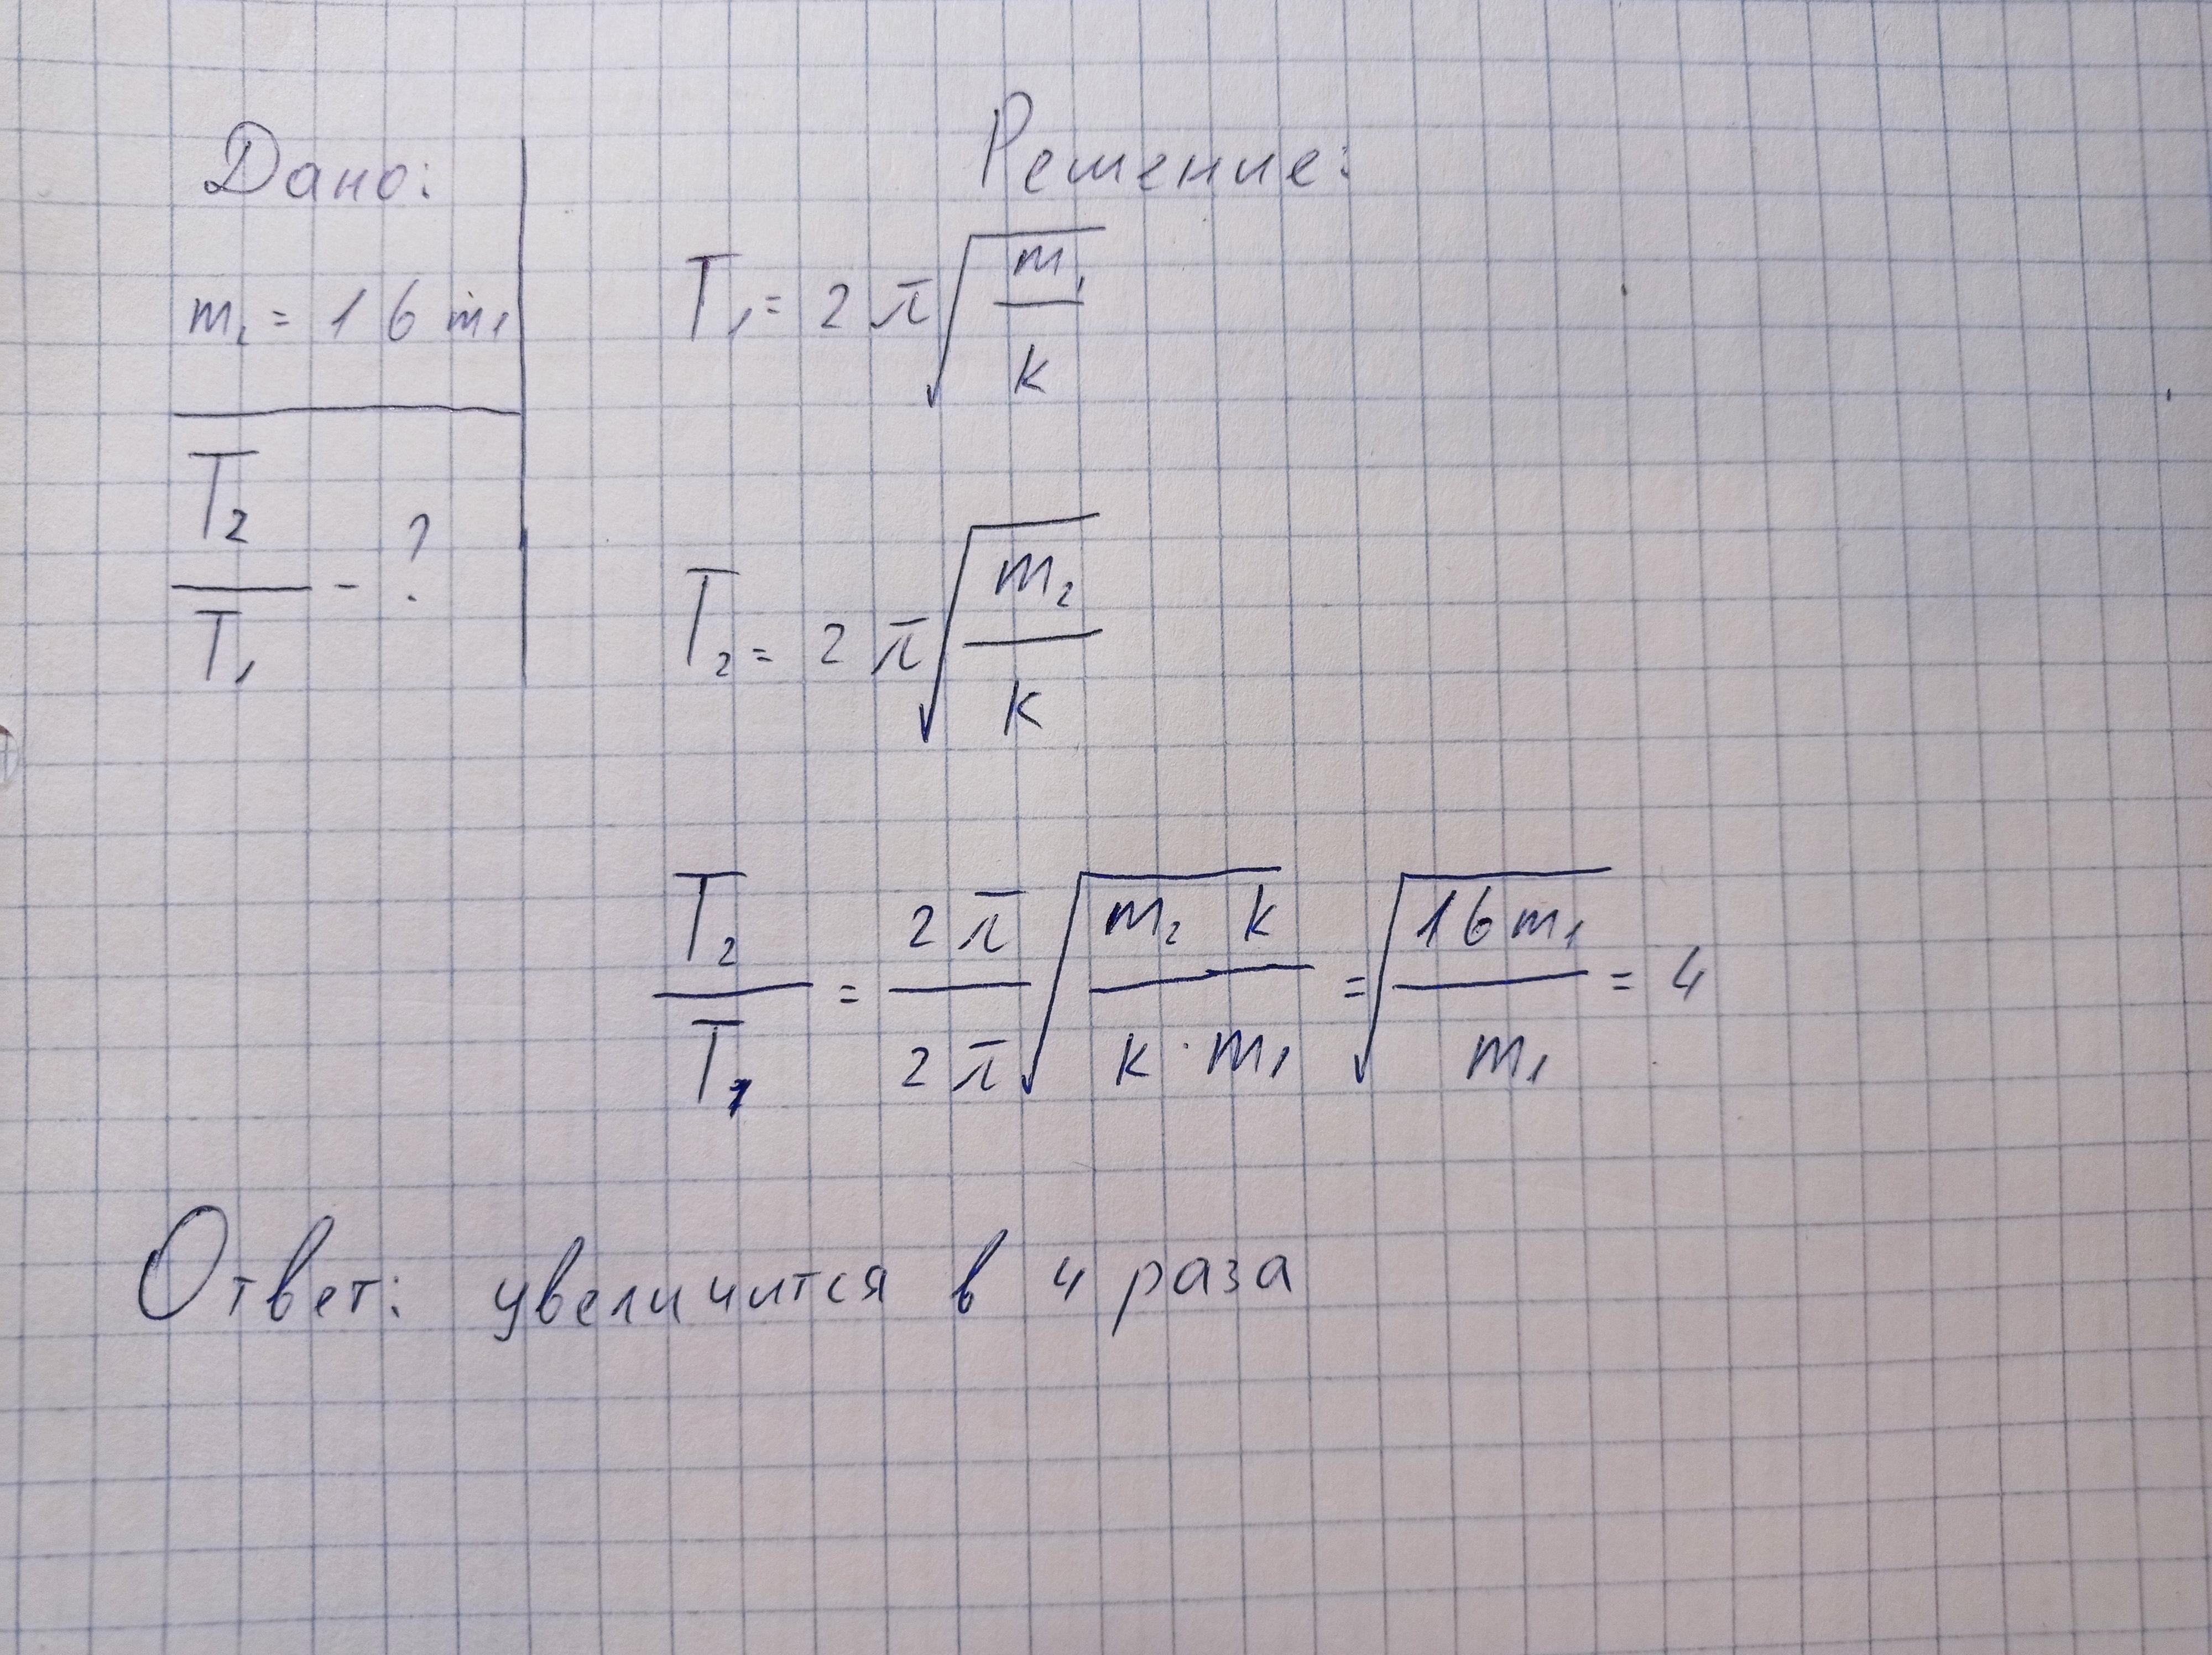 Дано:
m₂ = 16 m₁
T₂/T₁ - ?
Решение:
T₁ = 2π√(m₁/k)
T₂ = 2π√(m₂/k)
T₂/T₁ = 2π/2π √(m₂ k/k · m₁) = √(16 m₁/m₁) = 4
Ответ: увеличится в 4 раза